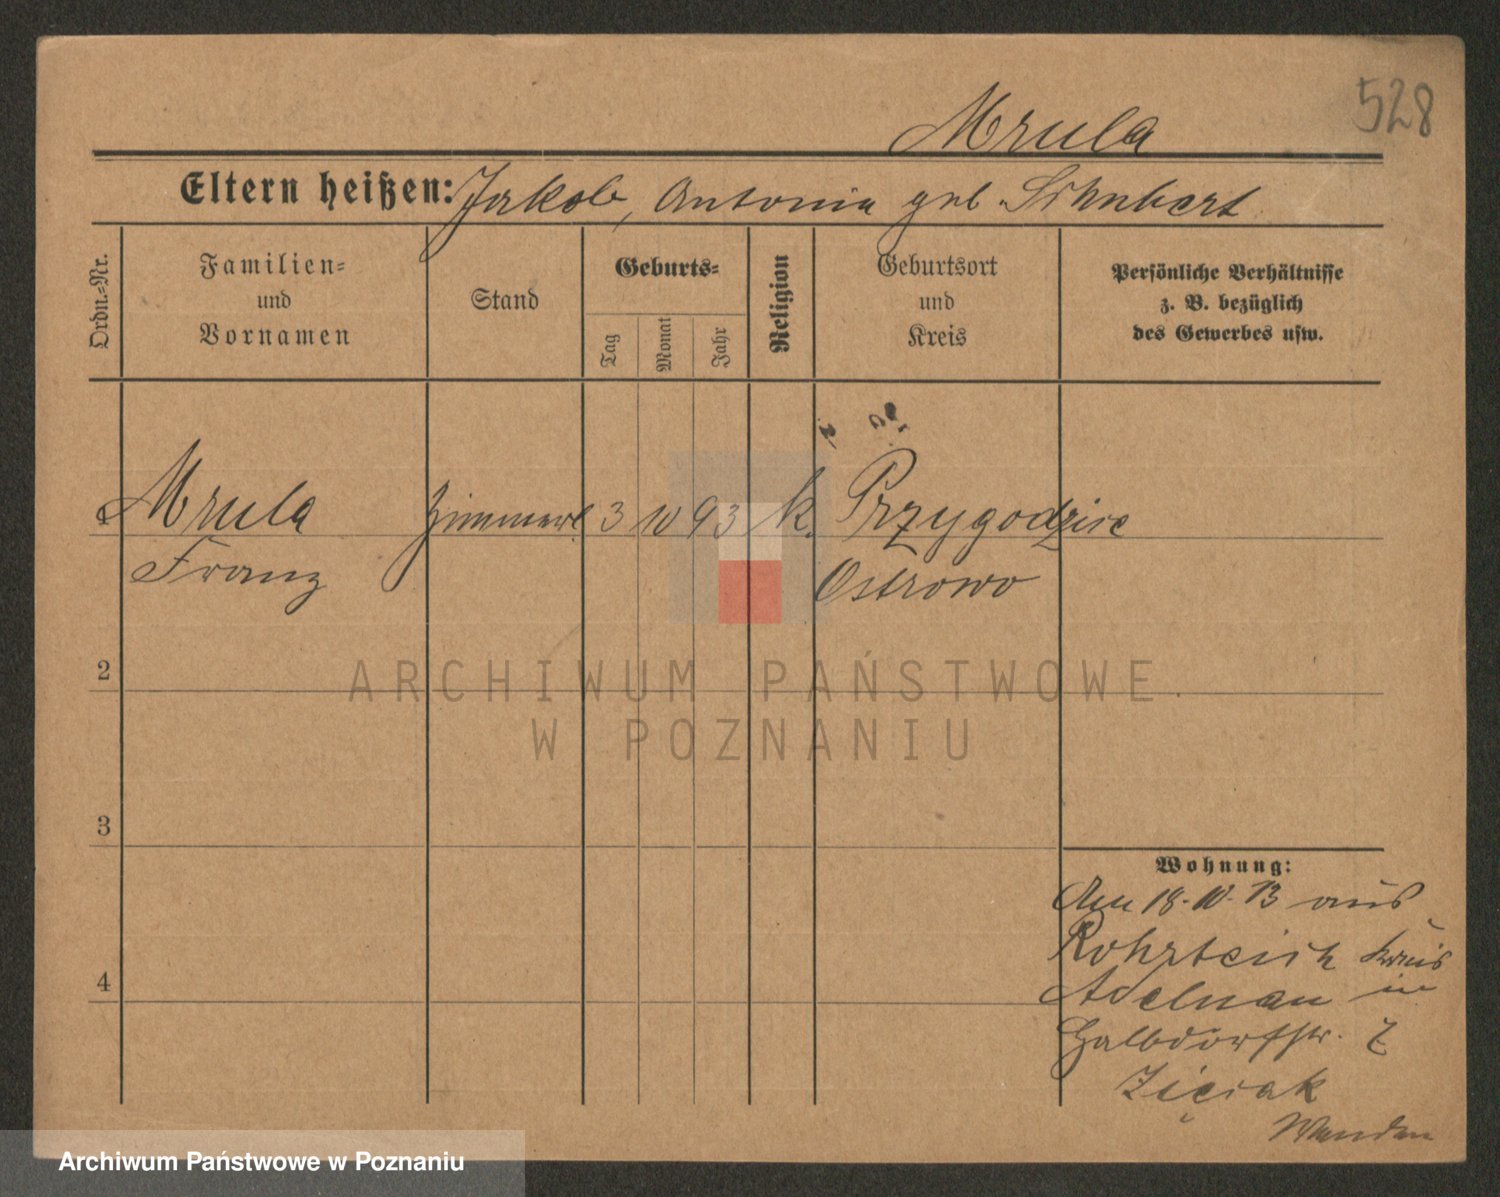 528
Mrula
Eltern heißen: Jakob, Antonia geb.
Ordn.-Nr.
Familien-
und
Vornamen
Stand
Geburts-
Tag
Monat
Jahr
Religion
Geburtsort
und
Kreis
Persönliche Verhältnisse
z. B. bezüglich
des Gewerbes usw.
1 Mrula 3 10 93 k. Przygodzice
Franz Ostrowo
2
3
4
Wohnung:
Am 18.10.13 aus
Rohrteich Kreis
Adelnau in
Halbdorfstr. 7
Zięciak
ARCHIWUM PAŃSTWOWE
W POZNANIU
Archiwum Państwowe w Poznaniu